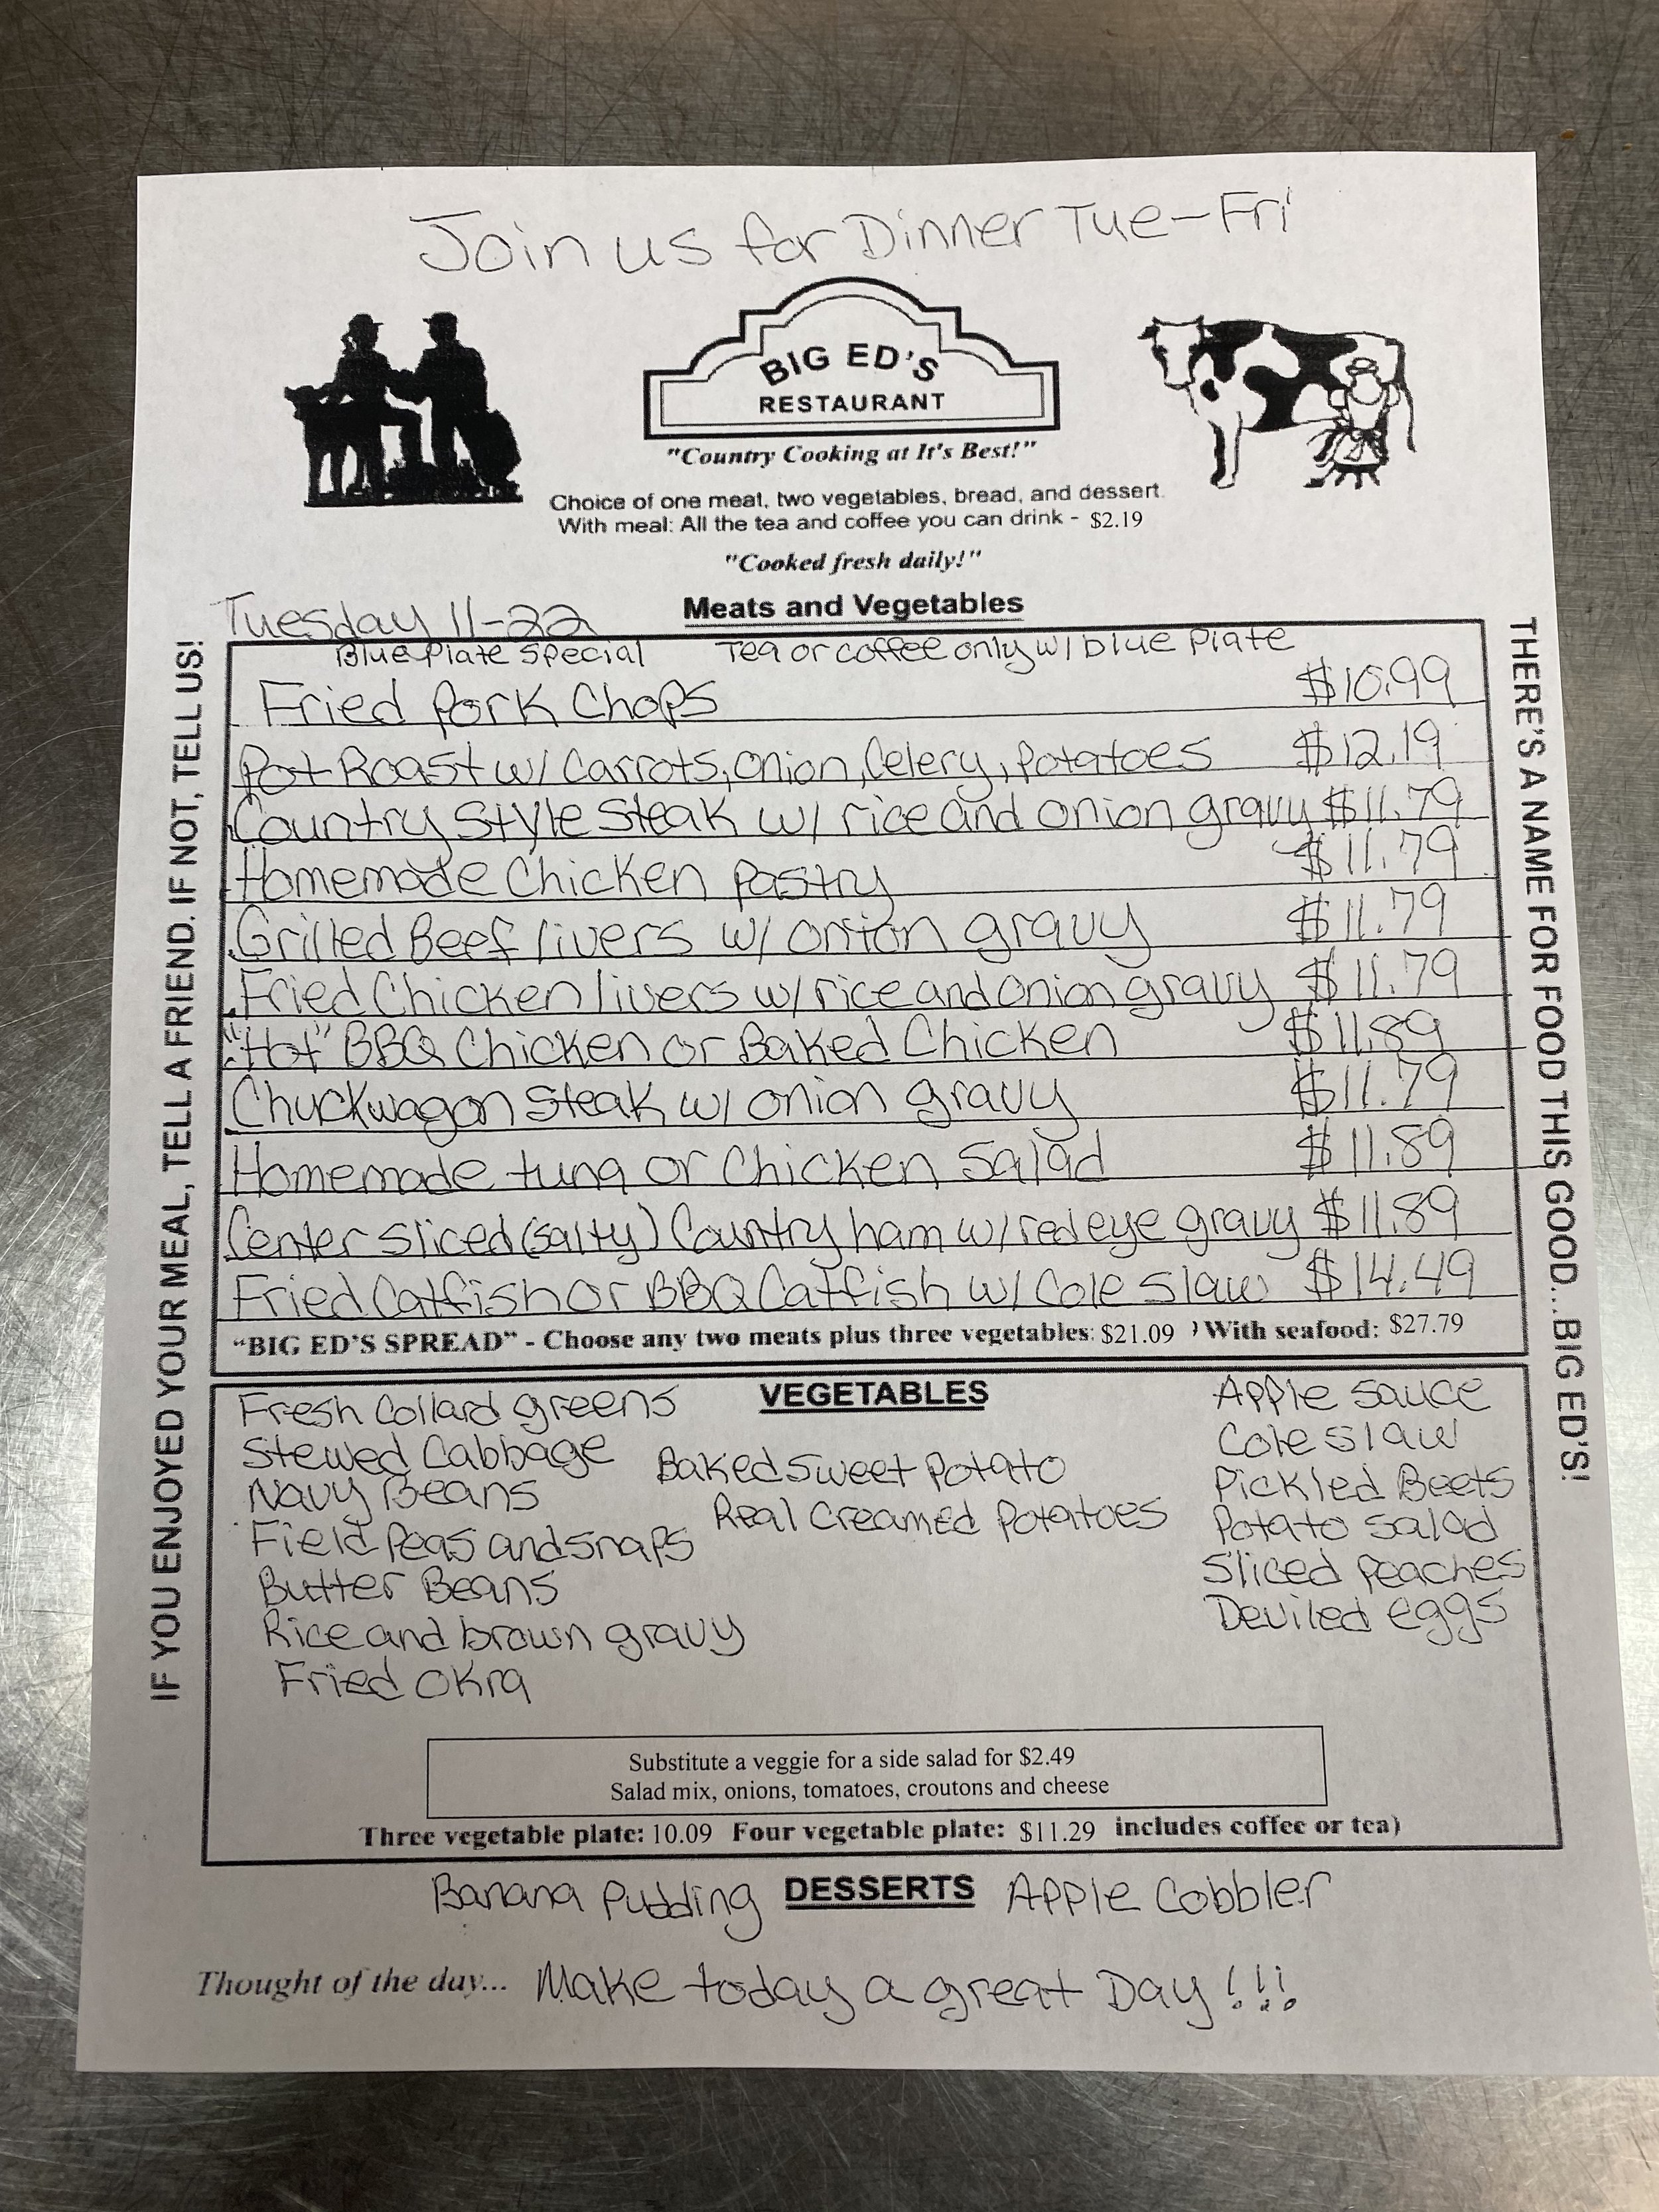 Join us for Dinner Tue-Fri
BIG ED'S
RESTAURANT
"Country Cooking at It's Best!"
Choice of one meat, two vegetables, bread, and dessert.
With meal: All the tea and coffee you can drink - $2.19
"Cooked fresh daily!"
Tuesday 11-22 Meats and Vegetables
Blue Plate Special Tea or coffee only w/ blue Plate
Fried Pork Chops $10.99
Pot Roast w/ Carrots, onion, Celery, Potatoes $12.19
Country Style Steak w/ rice and onion gravy $11.79
Homemade Chicken Pastry $11.79
Grilled Beef livers w/ onion gravy $11.79
Fried Chicken livers w/ rice and onion gravy $11.79
"Hot" BBQ Chicken or Baked Chicken $11.89
Chuckwagon Steak w/ onion gravy $11.79
Homemade tuna or Chicken Salad $11.89
Center sliced (salty) Country ham w/ red eye gravy $11.89
Fried Catfish or BBQ Catfish w/ Cole slaw $14.49
"BIG ED'S SPREAD" - Choose any two meats plus three vegetables: $21.09 ) With seafood: $27.79
VEGETABLES
Fresh Collard greens
Stewed Cabbage
Navy Beans
Field Peas and snaps
Butter Beans
Rice and brown gravy
Fried Okra
Baked Sweet Potato
Real Creamed Potatoes
Apple Sauce
Cole slaw
Pickled Beets
Potato Salad
Sliced Peaches
Deviled eggs
Substitute a veggie for a side salad for $2.49
Salad mix, onions, tomatoes, croutons and cheese
Three vegetable plate: 10.09 Four vegetable plate: $11.29 includes coffee or tea)
Banana Pudding DESSERTS Apple Cobbler
Thought of the day... Make today a great Day!!!
IF YOU ENJOYED YOUR MEAL, TELL A FRIEND. IF NOT, TELL US!
THERE'S A NAME FOR FOOD THIS GOOD...BIG ED'S!